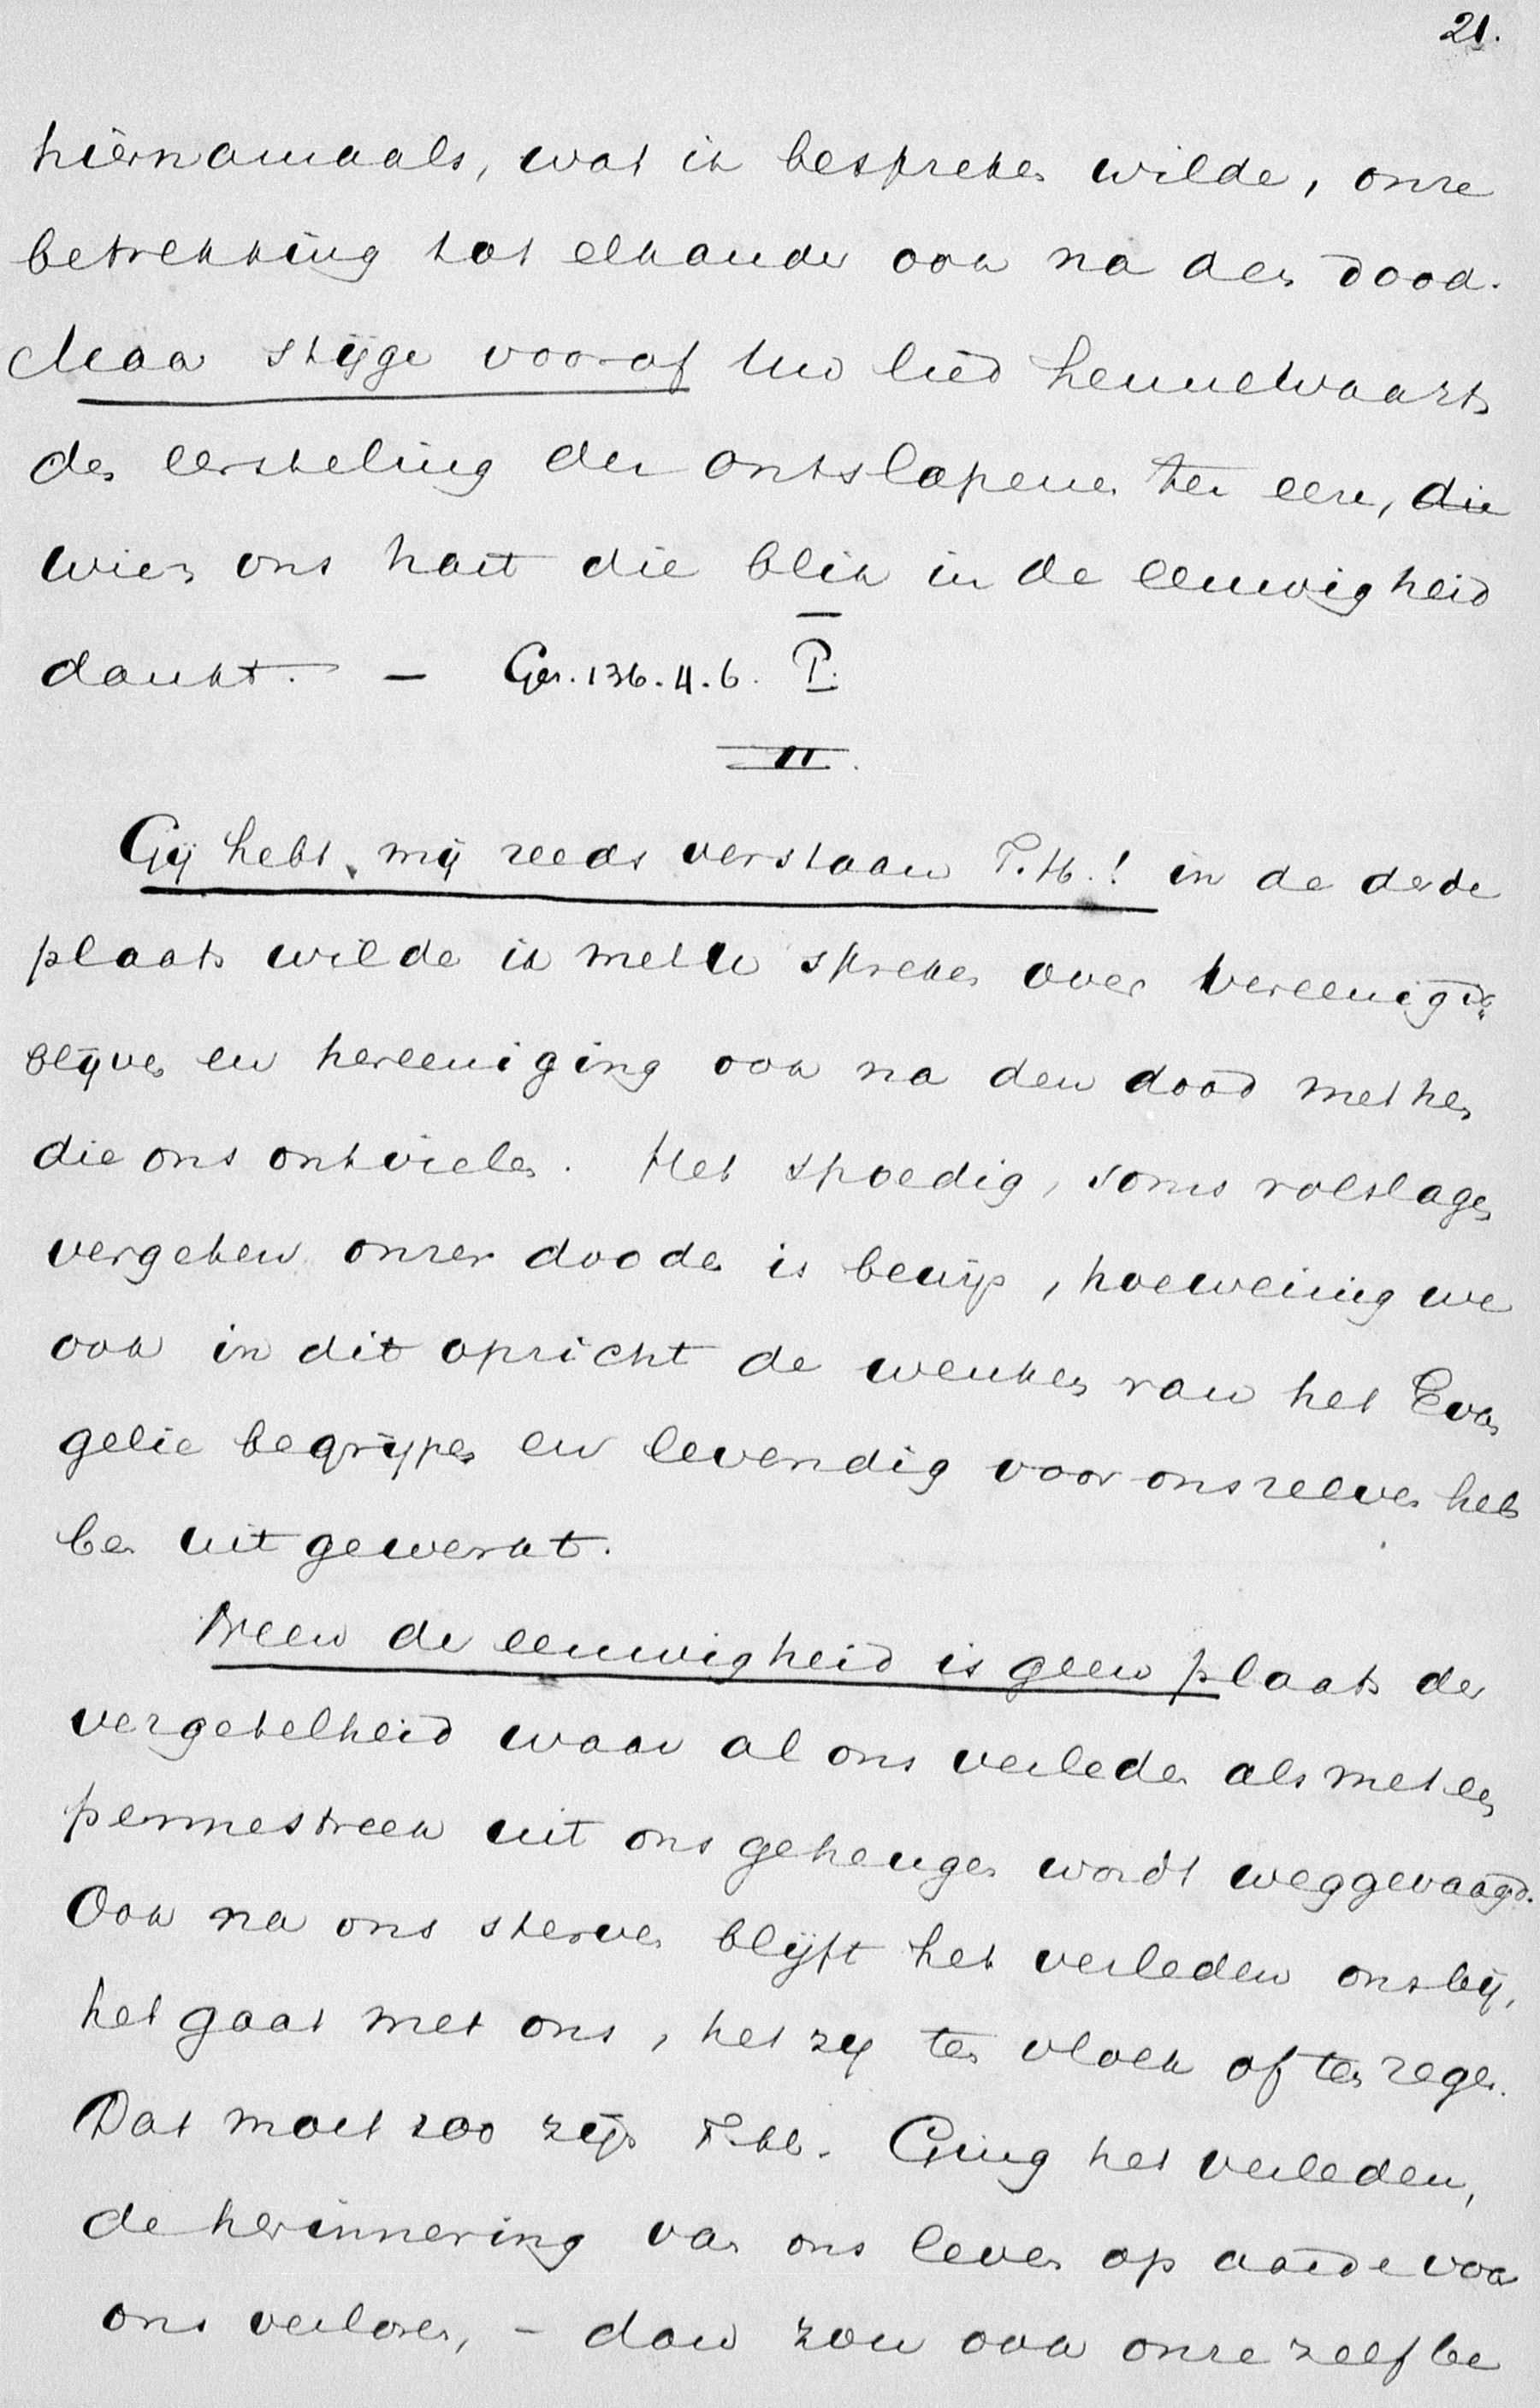 21.
hiernamaals, wat ik bespreken wilde, onze
betrekking tot elkander ook na den dood.
Maar stijge vooraf Uw lied hemelwaarts
den eersteling der ontslapenen ter eere, die
wien ons hart die blik in de eeuwigheid
dankt. — Gez. 136. 4. 6. P.
II.
Gij hebt mij reeds verstaan T. H.! in de derde
plaats wilde ik met U spreken over vereenigd
blijven en hereeniging ook na den dood met hen
die ons ontvielen. Het spoedig, soms volslagen
vergeten onzer dooden is bewijs, hoe weinig we
ook in dit opzicht de wenken van het Evan
gelie begrijpen en levendig voor onszelven heb
ben uitgewerkt.
Neen de eeuwigheid is geen plaats der
vergetelheid waar al ons verleden als met een
pennestreek uit ons geheugen wordt weggevaagd.
Ook na ons sterven blijft het verleden ons bij,
het gaat met ons, het zij ten vloek of ten zegen.
Dat moet zoo zijn T. H. Ging het verleden,
de herinnering van ons leven op aarde voor
ons verloren, – dan zou ook onze zelfbe